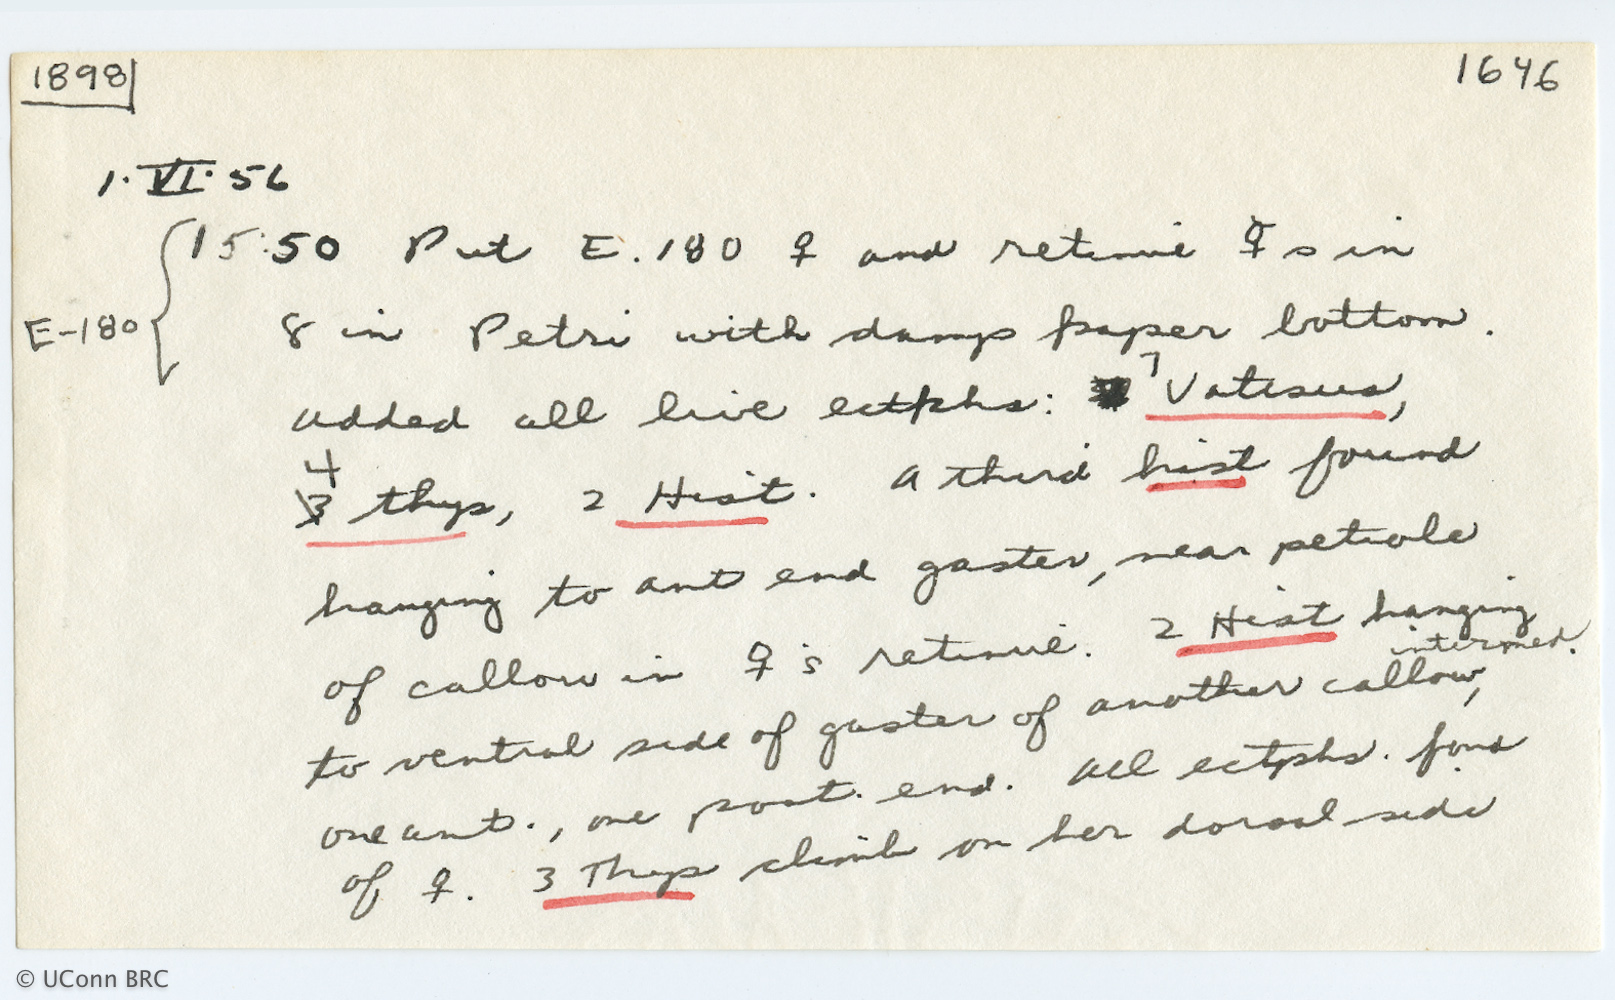 1898
1646
1·VI·56
15:50 Put E.180 ♀ and retinue ☿s in
E-180
8 in Petri with damp paper bottom.
added all live ectphs: 7 Vatesus,
4 thys, 2 Hist. A third hist found
hanging to ant end gaster, near petiole
of callow in ♀'s retinue. 2 Hist hanging
intermed.
to ventral side of gaster of another callow,
one ant., one post. end. All ectphs. fond
of ♀. 3 Thys climb on her dorsal side
© UConn BRC